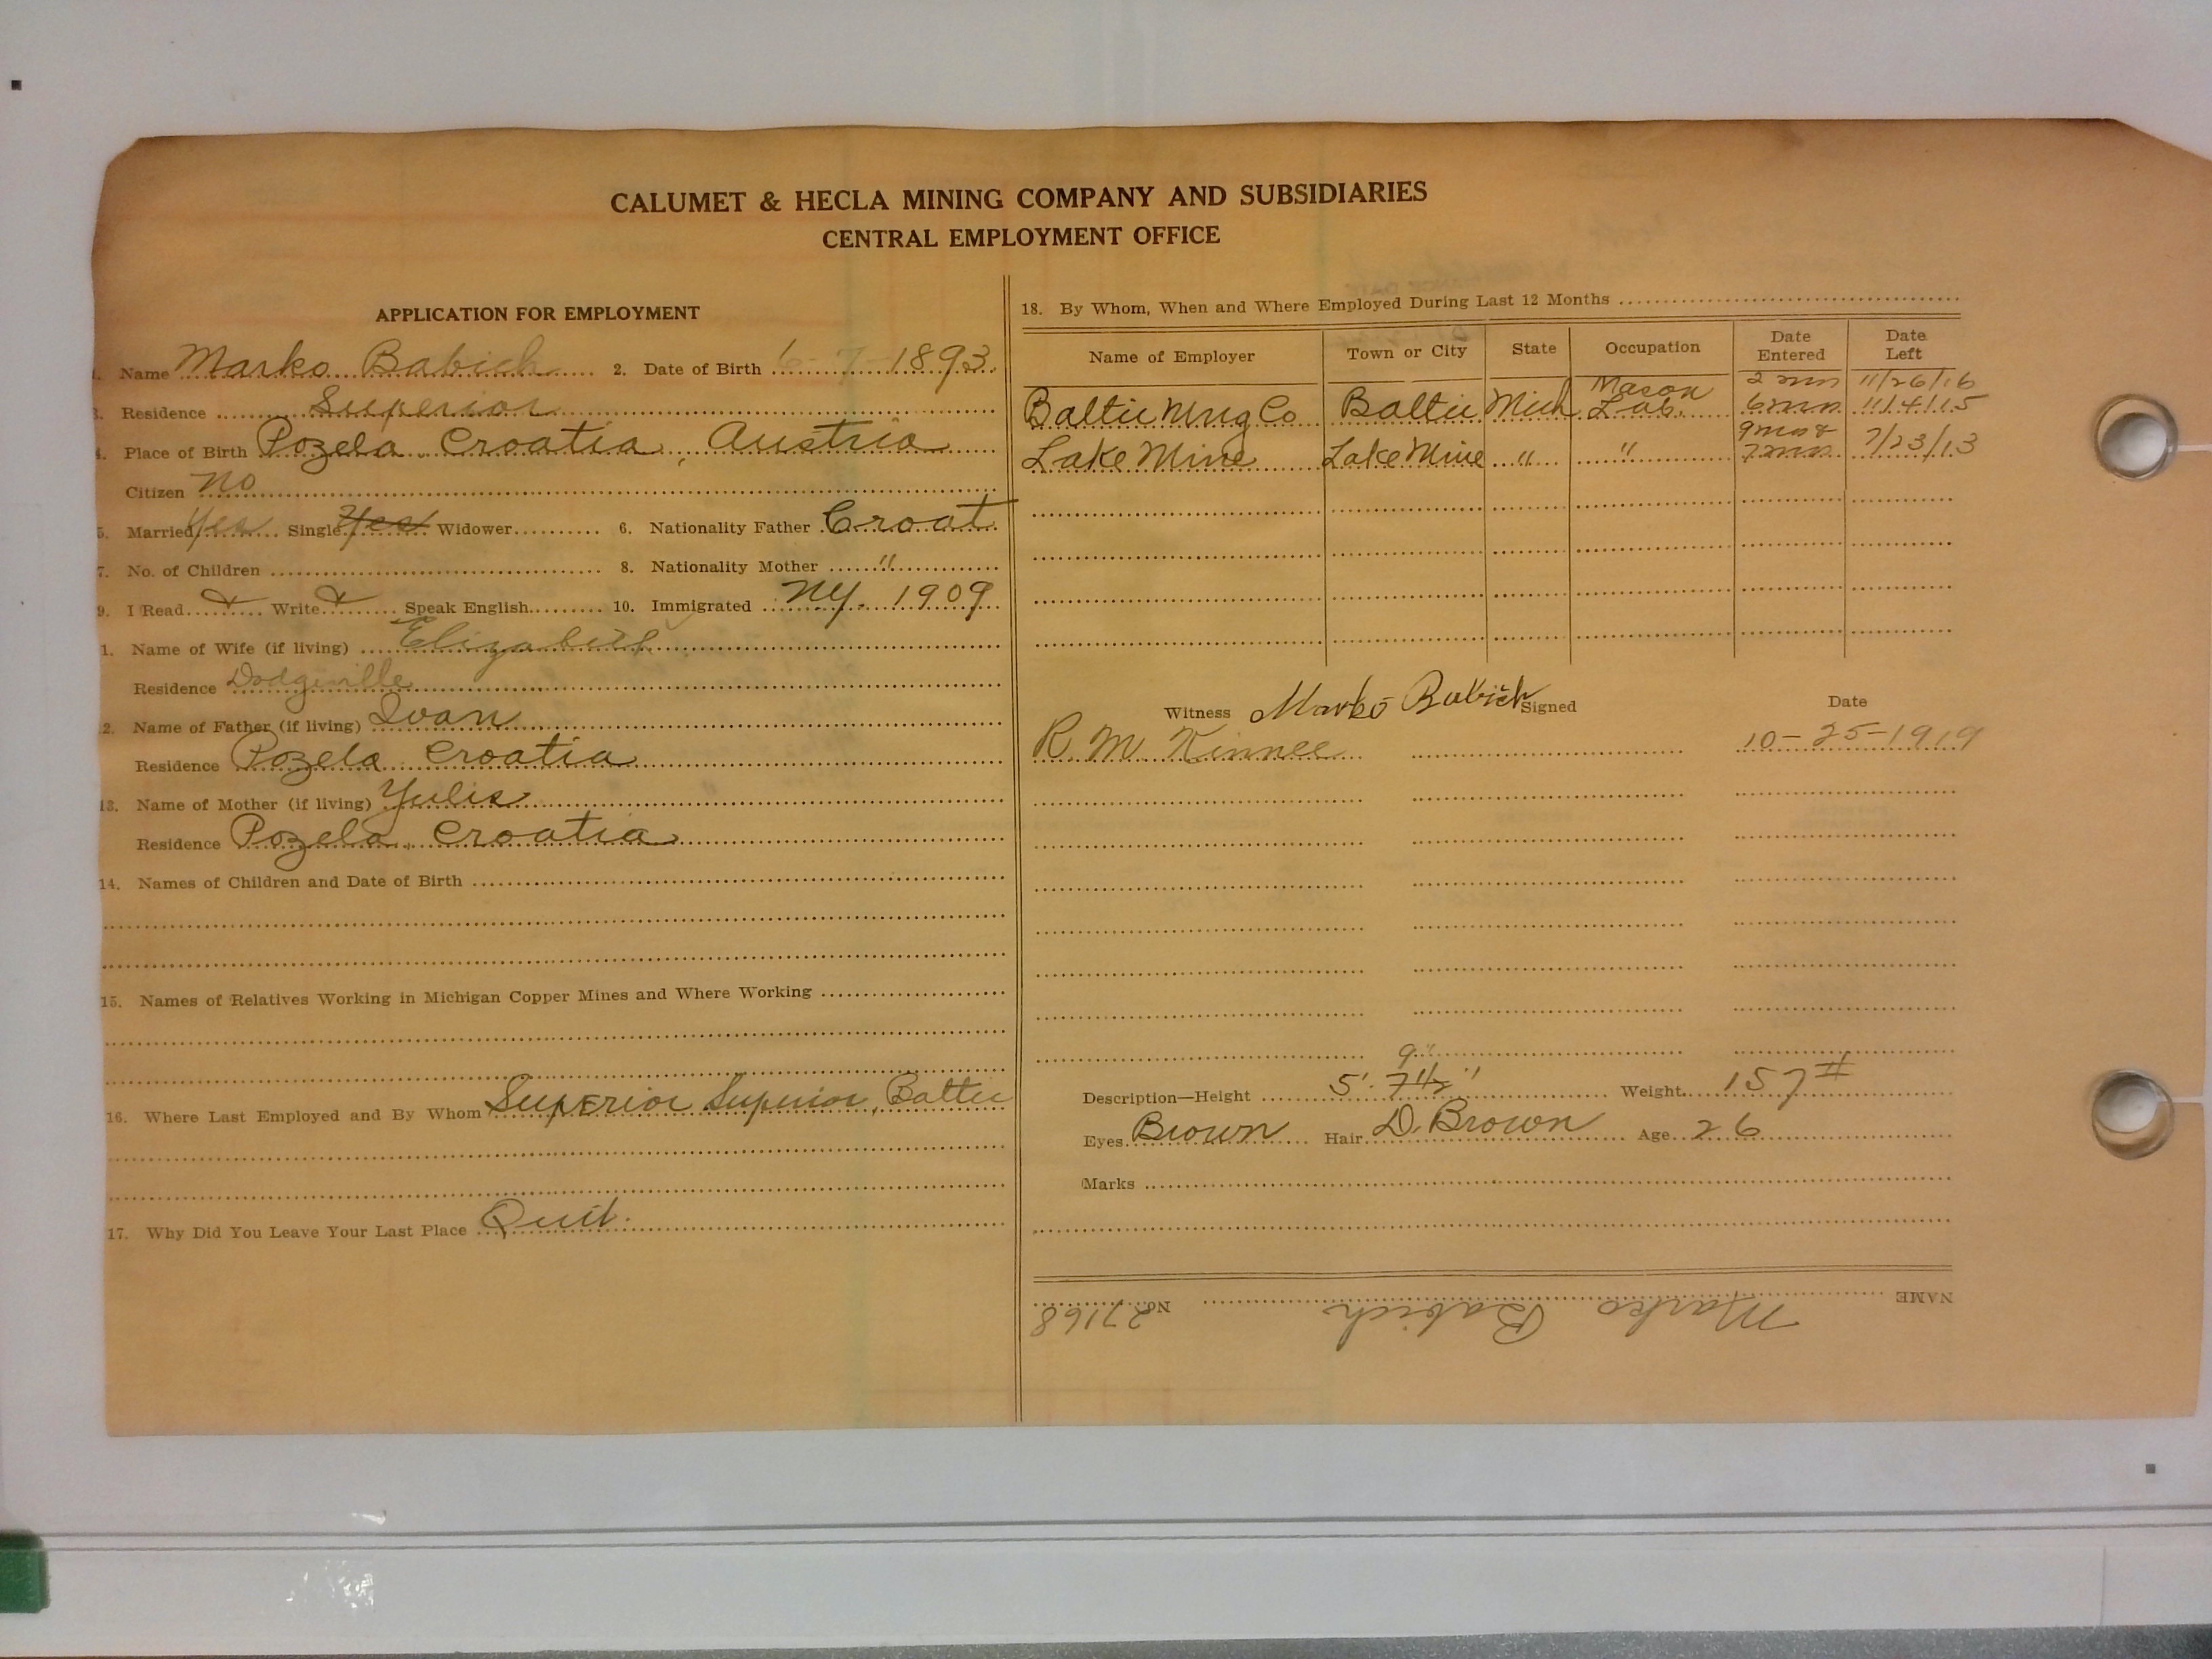 CALUMET & HECLA MINING COMPANY AND SUBSIDIARIES
CENTRAL EMPLOYMENT OFFICE
APPLICATION FOR EMPLOYMENT
1. Name Marko Babich 2. Date of Birth 6-7-1893
3. Residence Superior
4. Place of Birth Pozela Croatia, Austria
Citizen no
5. Married Yes Single Yes Widower 6. Nationality Father Croat
7. No. of Children 8. Nationality Mother "
9. I Read Write Speak English 10. Immigrated NY. 1909
1. Name of Wife (if living) Elizabeth
Residence Dodgeville
2. Name of Father (if living) Ivan
Residence Pozela Croatia
13. Name of Mother (if living)
Residence Pozela, Croatia
14. Names of Children and Date of Birth
15. Names of Relatives Working in Michigan Copper Mines and Where Working
16. Where Last Employed and By Whom Superior Superior, Baltic
17. Why Did You Leave Your Last Place Quit.
18. By Whom, When and Where Employed During Last 12 Months
Name of Employer Town or City State Occupation Date Entered Date Left
Mason 2 mn 11/26/16
Baltic Mng Co Baltic Mich Lab. 6 mn 11/4/15
9 mn &
Lake Mine Lake Mine " " 7 mn 7/23/13
Witness Marko Babich Signed Date
R. M. Kinnee 10-25-1919
9"
Description—Height 5' 7 1/2" Weight 157 #
Eyes Brown Hair D. Brown Age 26
Marks
NAME Marko Babich No. 27168